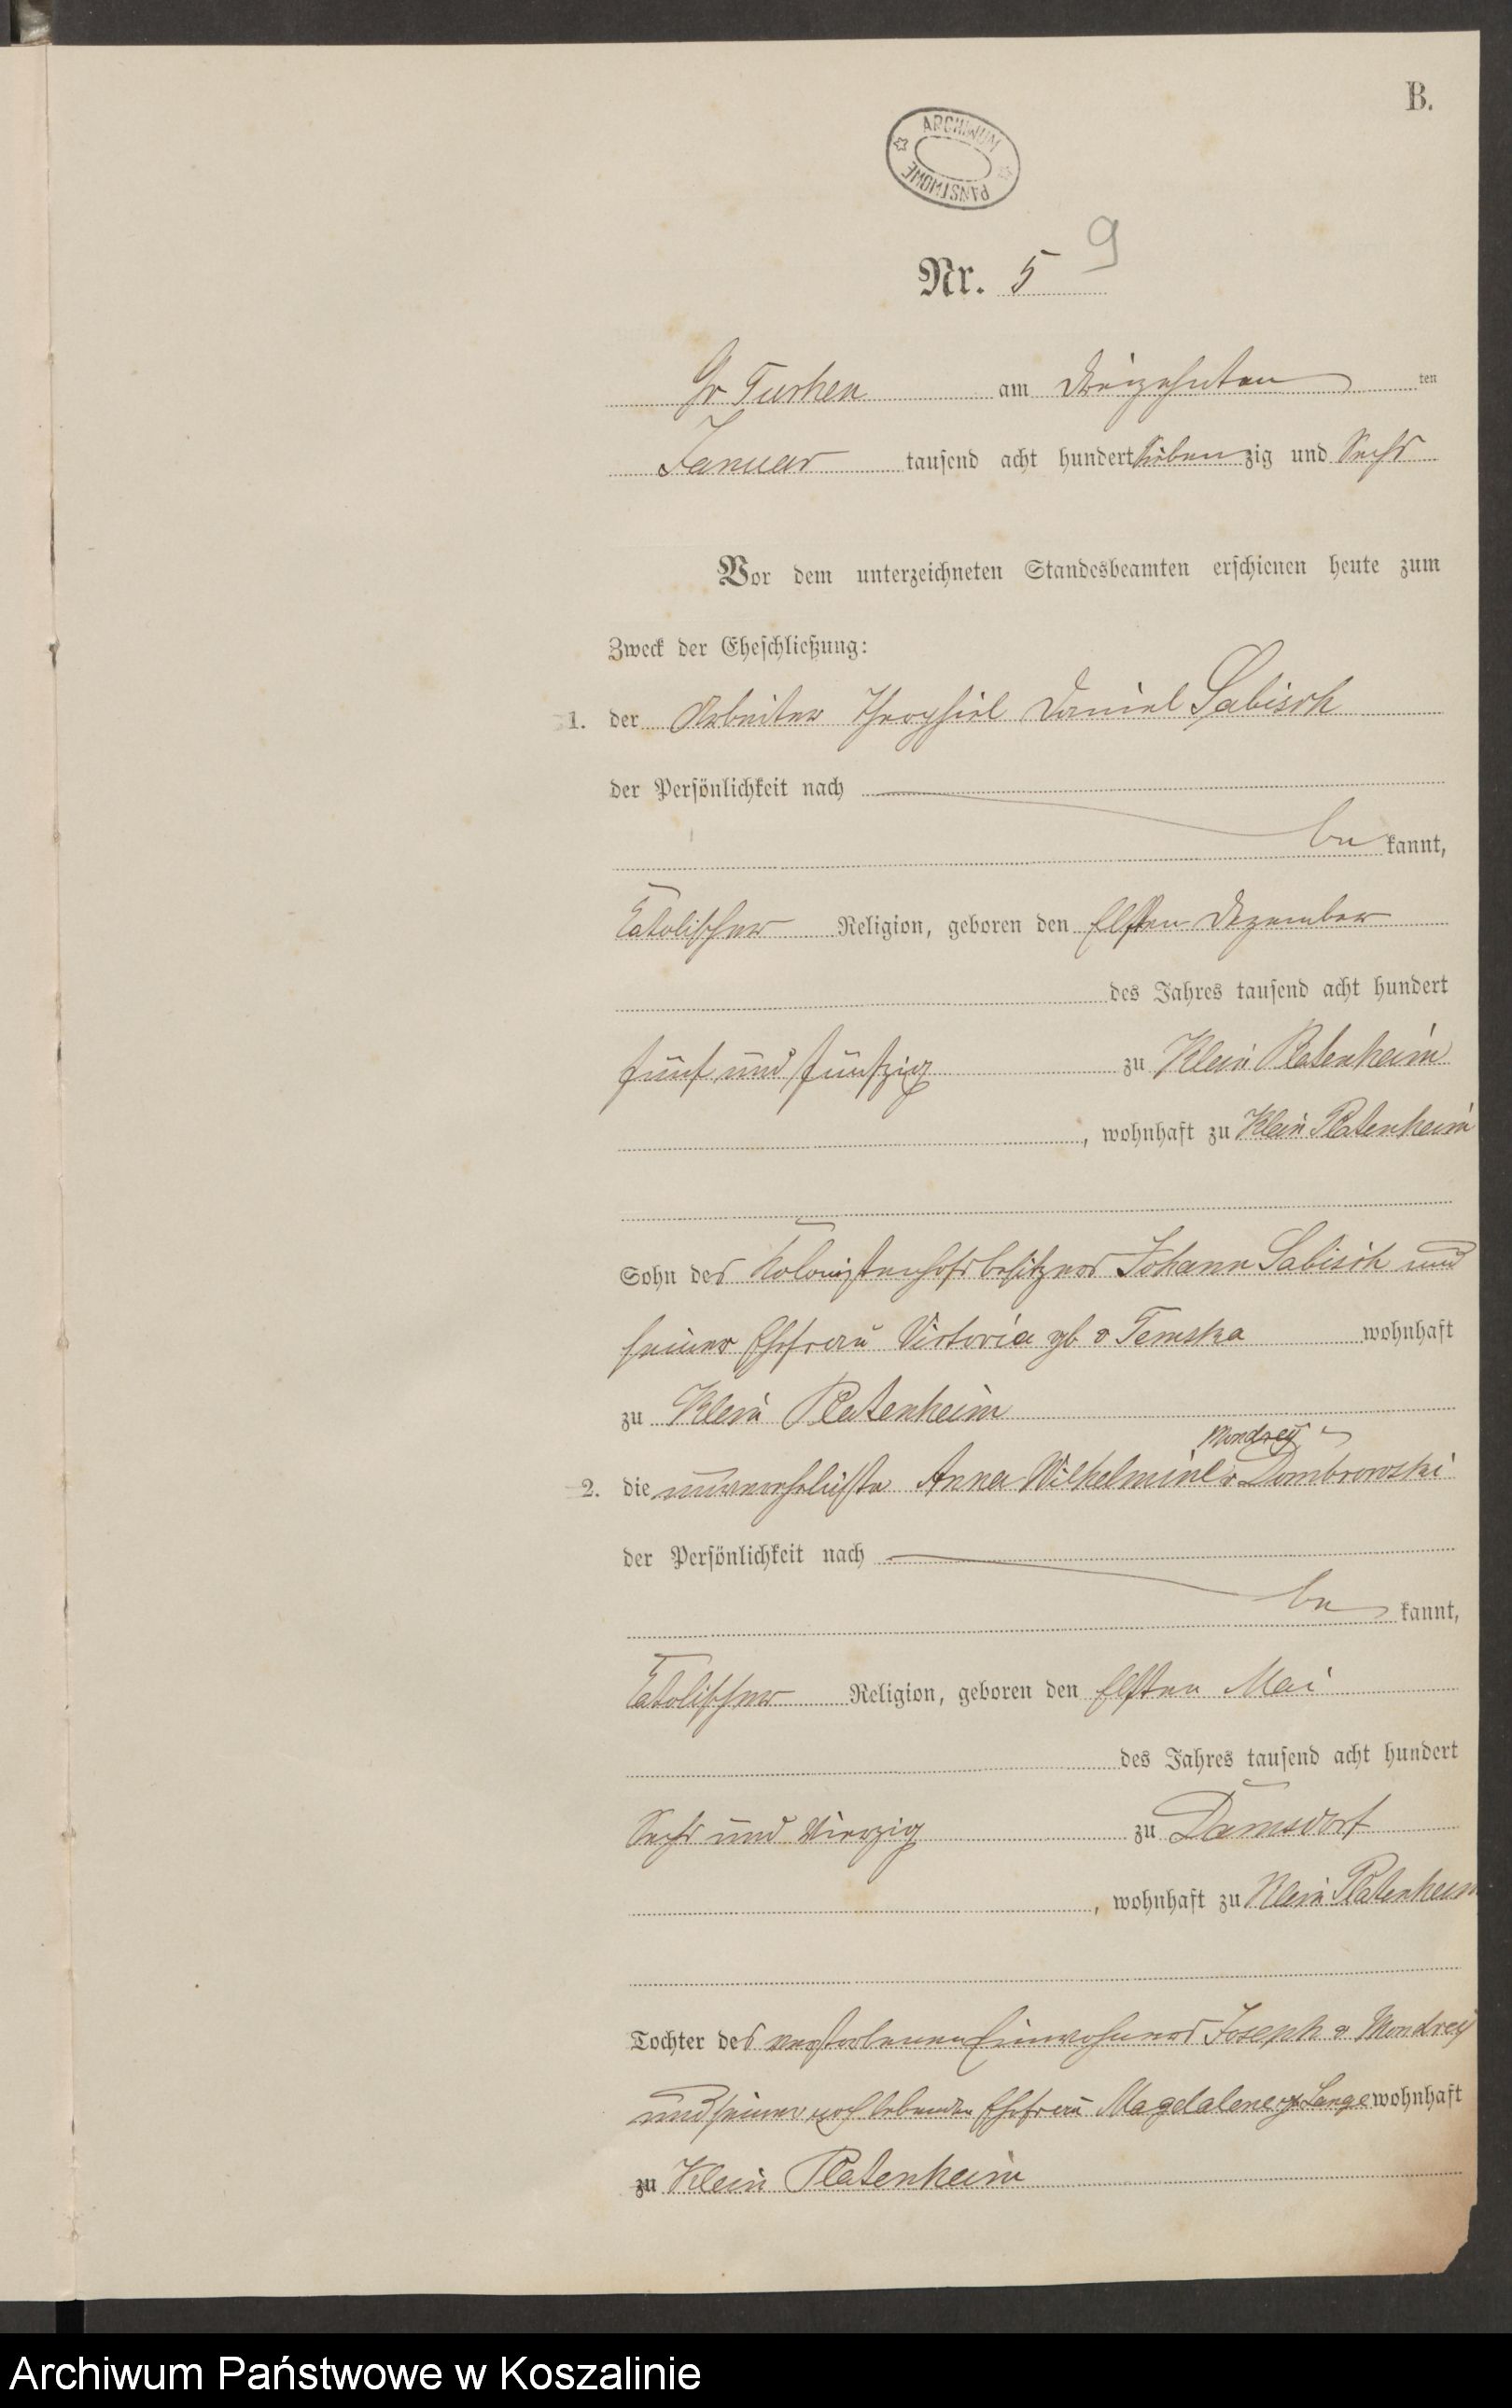 B.
ARCHIWUM PAŃSTWOWE
9
Nr. 5
Gr Tuchen am Dreizehnten ten
Januar tausend acht hundert sieben zig und Sechs
Vor dem unterzeichneten Standesbeamten erschienen heute zum
Zweck der Eheschließung:
1. der Arbeiter Daniel Sabisch
der Persönlichkeit nach
be kannt,
katolischer Religion, geboren den elften Dezember
des Jahres tausend acht hundert
fünf und fünfzig zu Klein Platenheim
, wohnhaft zu Klein Platenheim
Sohn des Kolonistenhofsbesitzers Johann Sabisch und
seiner Ehefrau Victoria gb v Temska wohnhaft
zu Klein Platenheim
Mondrey
2. die unverehelichte Anna Wilhelmine v Dombrowski
der Persönlichkeit nach
be kannt,
katolischer Religion, geboren den elften Mai
des Jahres tausend acht hundert
Sechs und Vierzig zu Damsdorf
, wohnhaft zu Klein Platenheim
Tochter des verstorbenen Einwohners Joseph v Mondrey
und seiner noch lebenden Ehefrau Magdalene gb Lange wohnhaft
zu Klein Platenheim
Archiwum Państwowe w Koszalinie